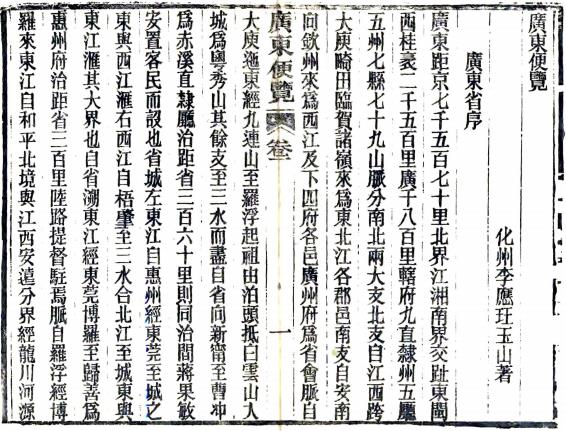 廣東便覽
化州李應玨玉山著
廣東省序
廣東距京七千五百七十里北界江湘南界交趾東閩
西桂袤二千五百里廣千八百里轄府九直隸州五廳
五州七縣七十九山脈分南北兩大支北支自江西跨
大庾畸田臨賀諸嶺來爲東北江各郡邑南支自安南
向欽州來爲西江及下四府各邑廣州府爲省會脈自
廣東便覽
卷一
一
大庾迤東經九連山至羅浮起祖由泊頭抵白雲山入
城爲粵秀山其餘支至三水而盡自省向新甯至曹冲
爲赤溪直隸廳治距省三百六十里則同治間蔣果敏
安置客民而設也省城左東江自惠州經東莞至城之
東與西江滙右西江自梧肇至三水台北江至城東與
東江滙其大界也自省溯東江經東莞博羅至歸善爲
惠州府治距省三百里陸路提督駐焉脈自羅浮經博
羅來東江自和平北境與江西安遠分界經龍川河源